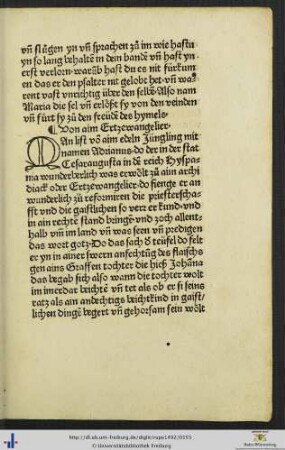 vñ slůgen yn vñ sprachen zů im wie hastu
yn so lang behaltē in dem bandē vñ hast yn
erst verlorn·warůb hast du es nit fürkum
en das er den psalter nit gelobt het·vñ wa
rent vast vnrichtig über den selbē·Also nam
Maria die sel vñ erlößt sy von den veinden
vñ fürt sy zů den freüdē des hymels·
Von aim Ertzewangelier·
MAn lißt võ aim edeln Jüngling mit
namen Adrianus·do der in der stat
Cesaraugusta in dē reich Hyspa
nia wunderberlich was erwölt zů aim archi
diack oder Ertzewangelier·do fienge er an
wunderlich zů reformiren die priesterscha
fft vnd die gaistlichen so verr er kund·vnd
in ain rechtē stand bringē·vnd zoch allent
halb vm̄ im land vñ was seen vñ predigen
das wort gotz·Do das sach đ teüfel do felt
er yn in ainer swern anfechtūg des flaischs
gen ains Graffen tochter die hieß Johāna
das begab sich also wann die tochter wolt
im imerdar beichtē vñ tet als ob er si seins
ratz als ain andechtigs beichtkind in gaist/
lichen dingē begert vñ gehorsam sein wölt
http://dl.ub.uni-freiburg.de/diglit/rupe1492/0155
© Universitätsbibliothek Freiburg